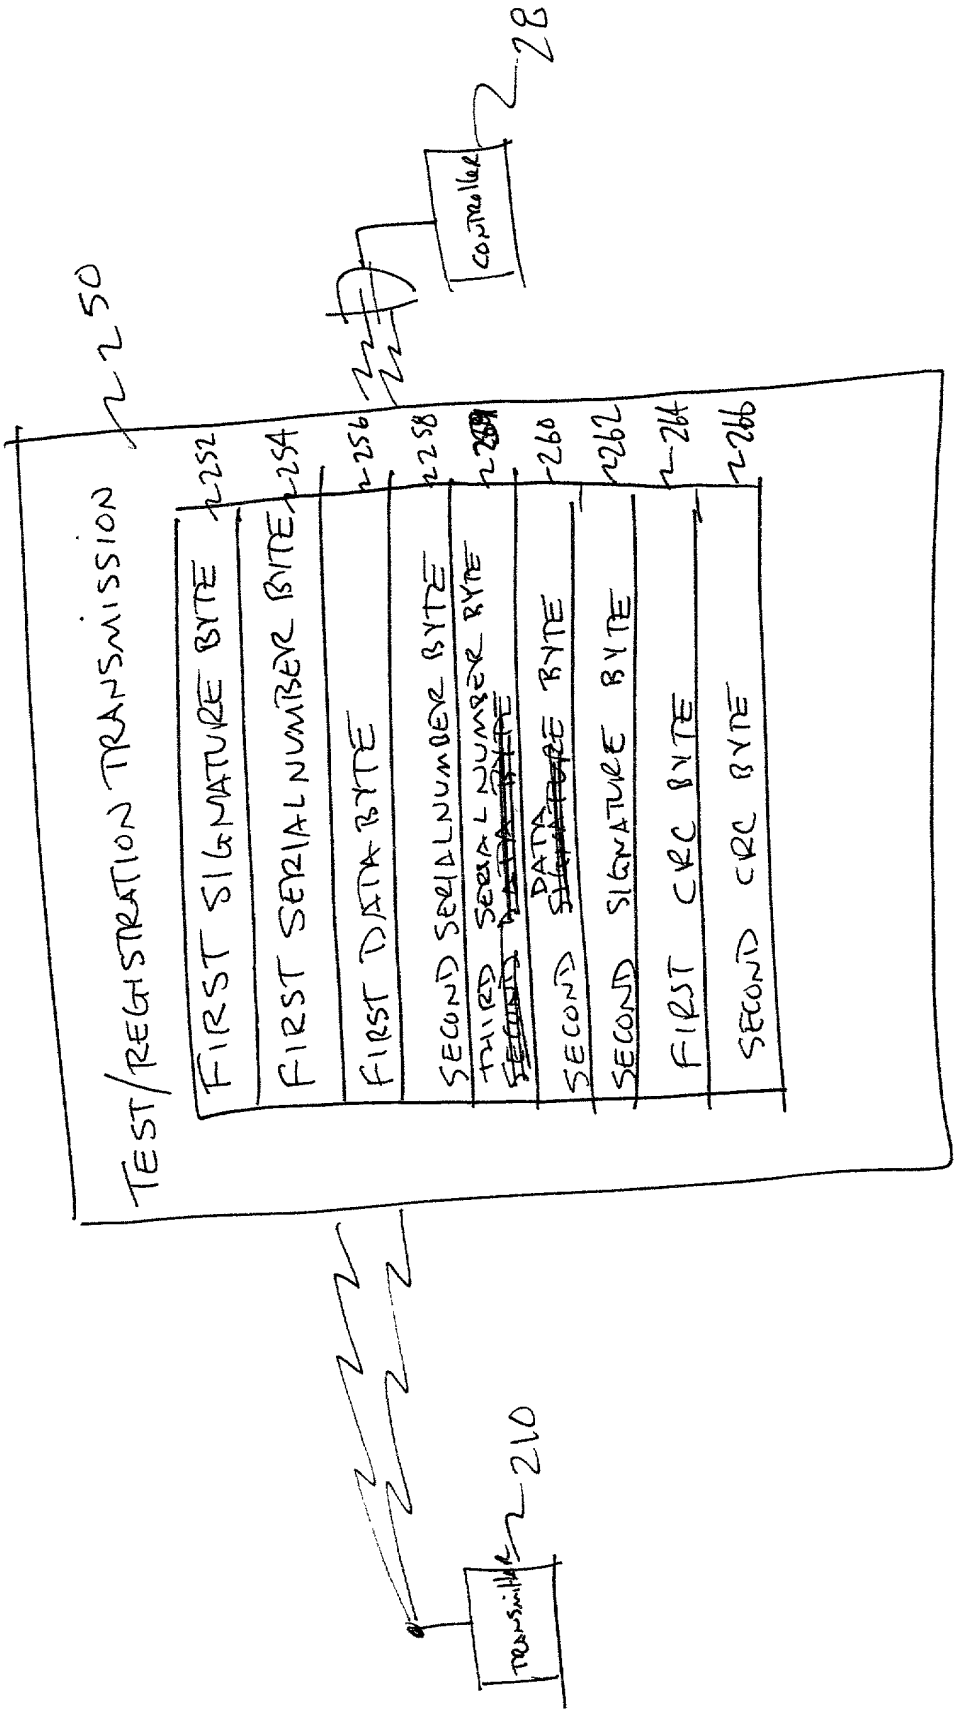 TEST/REGISTRATION TRANSMISSION
250
FIRST SIGNATURE BYTE 252
FIRST SERIAL NUMBER BYTE 254
FIRST DATA BYTE 256
SECOND SERIAL NUMBER BYTE 258
THIRD SERIAL NUMBER BYTE
SECOND DATA BYTE 260
SECOND SIGNATURE BYTE 262
FIRST CRC BYTE 264
SECOND CRC BYTE 266
TRANSMITTER 210
CONTROLLER 28